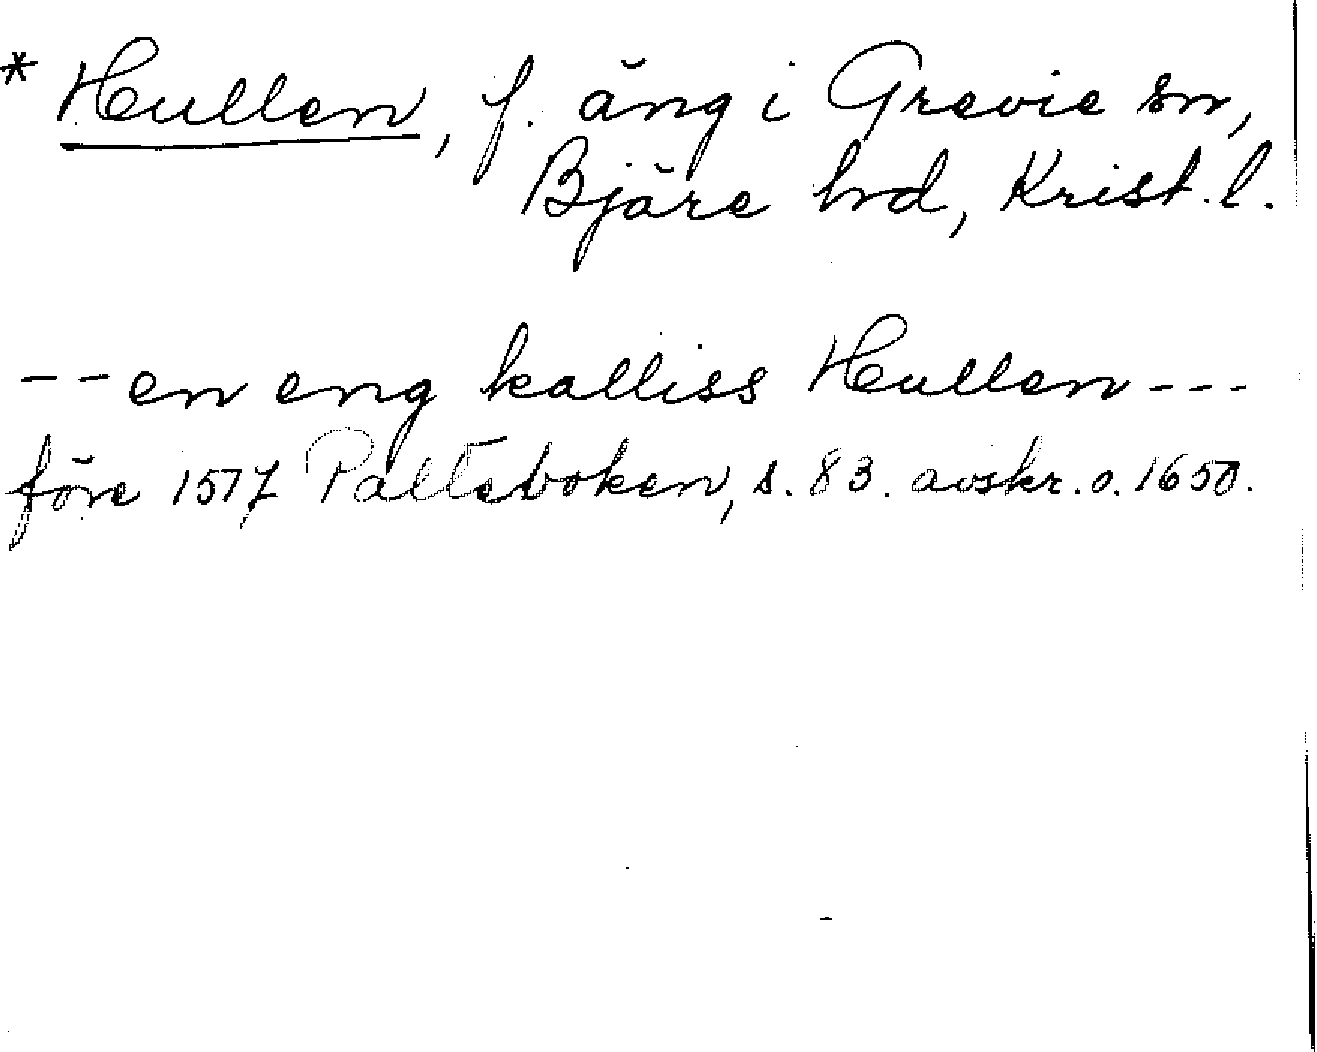 * Hullen, f. äng i Grevie sn,
Bjäre hd, Krist. l.
-- en eng kalliss Hullen ---
före 1517 Palteboken, s. 83. avskr. o. 1650.